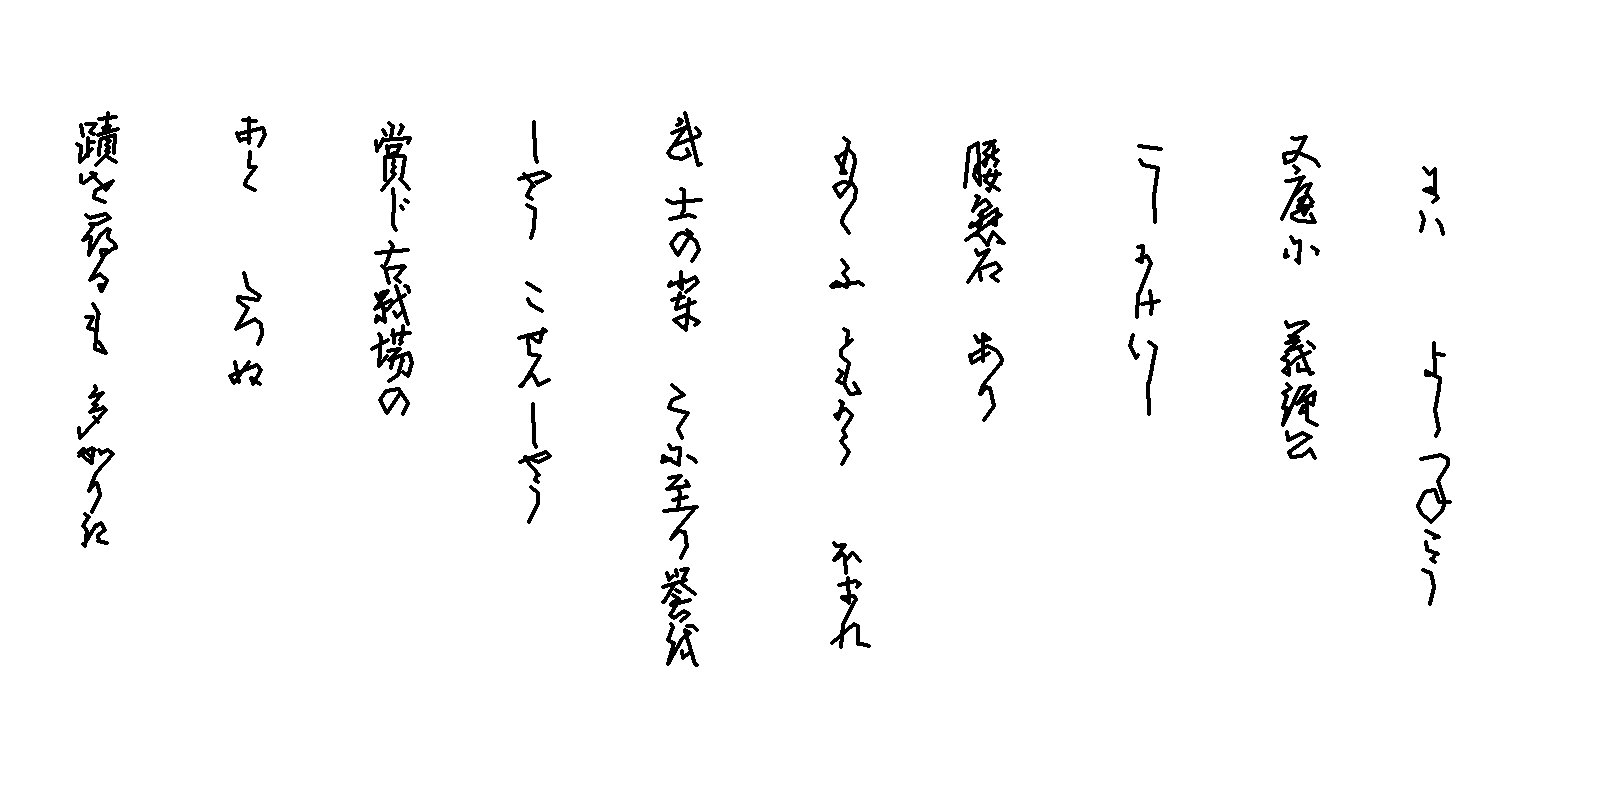 にハ　よしつねこう
又庭に　義経公
こしかけいし
腰懸石　あり
ものゝふ　ともから　ほまれ
武士の輩　こゝに至り誉を
しやう　こせんしやう
賞じ古戦場の
あと　たつぬ
蹟を尋るも多かりき